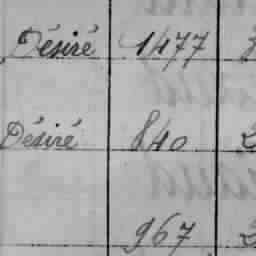 Désiré 1477
Désiré 840
967